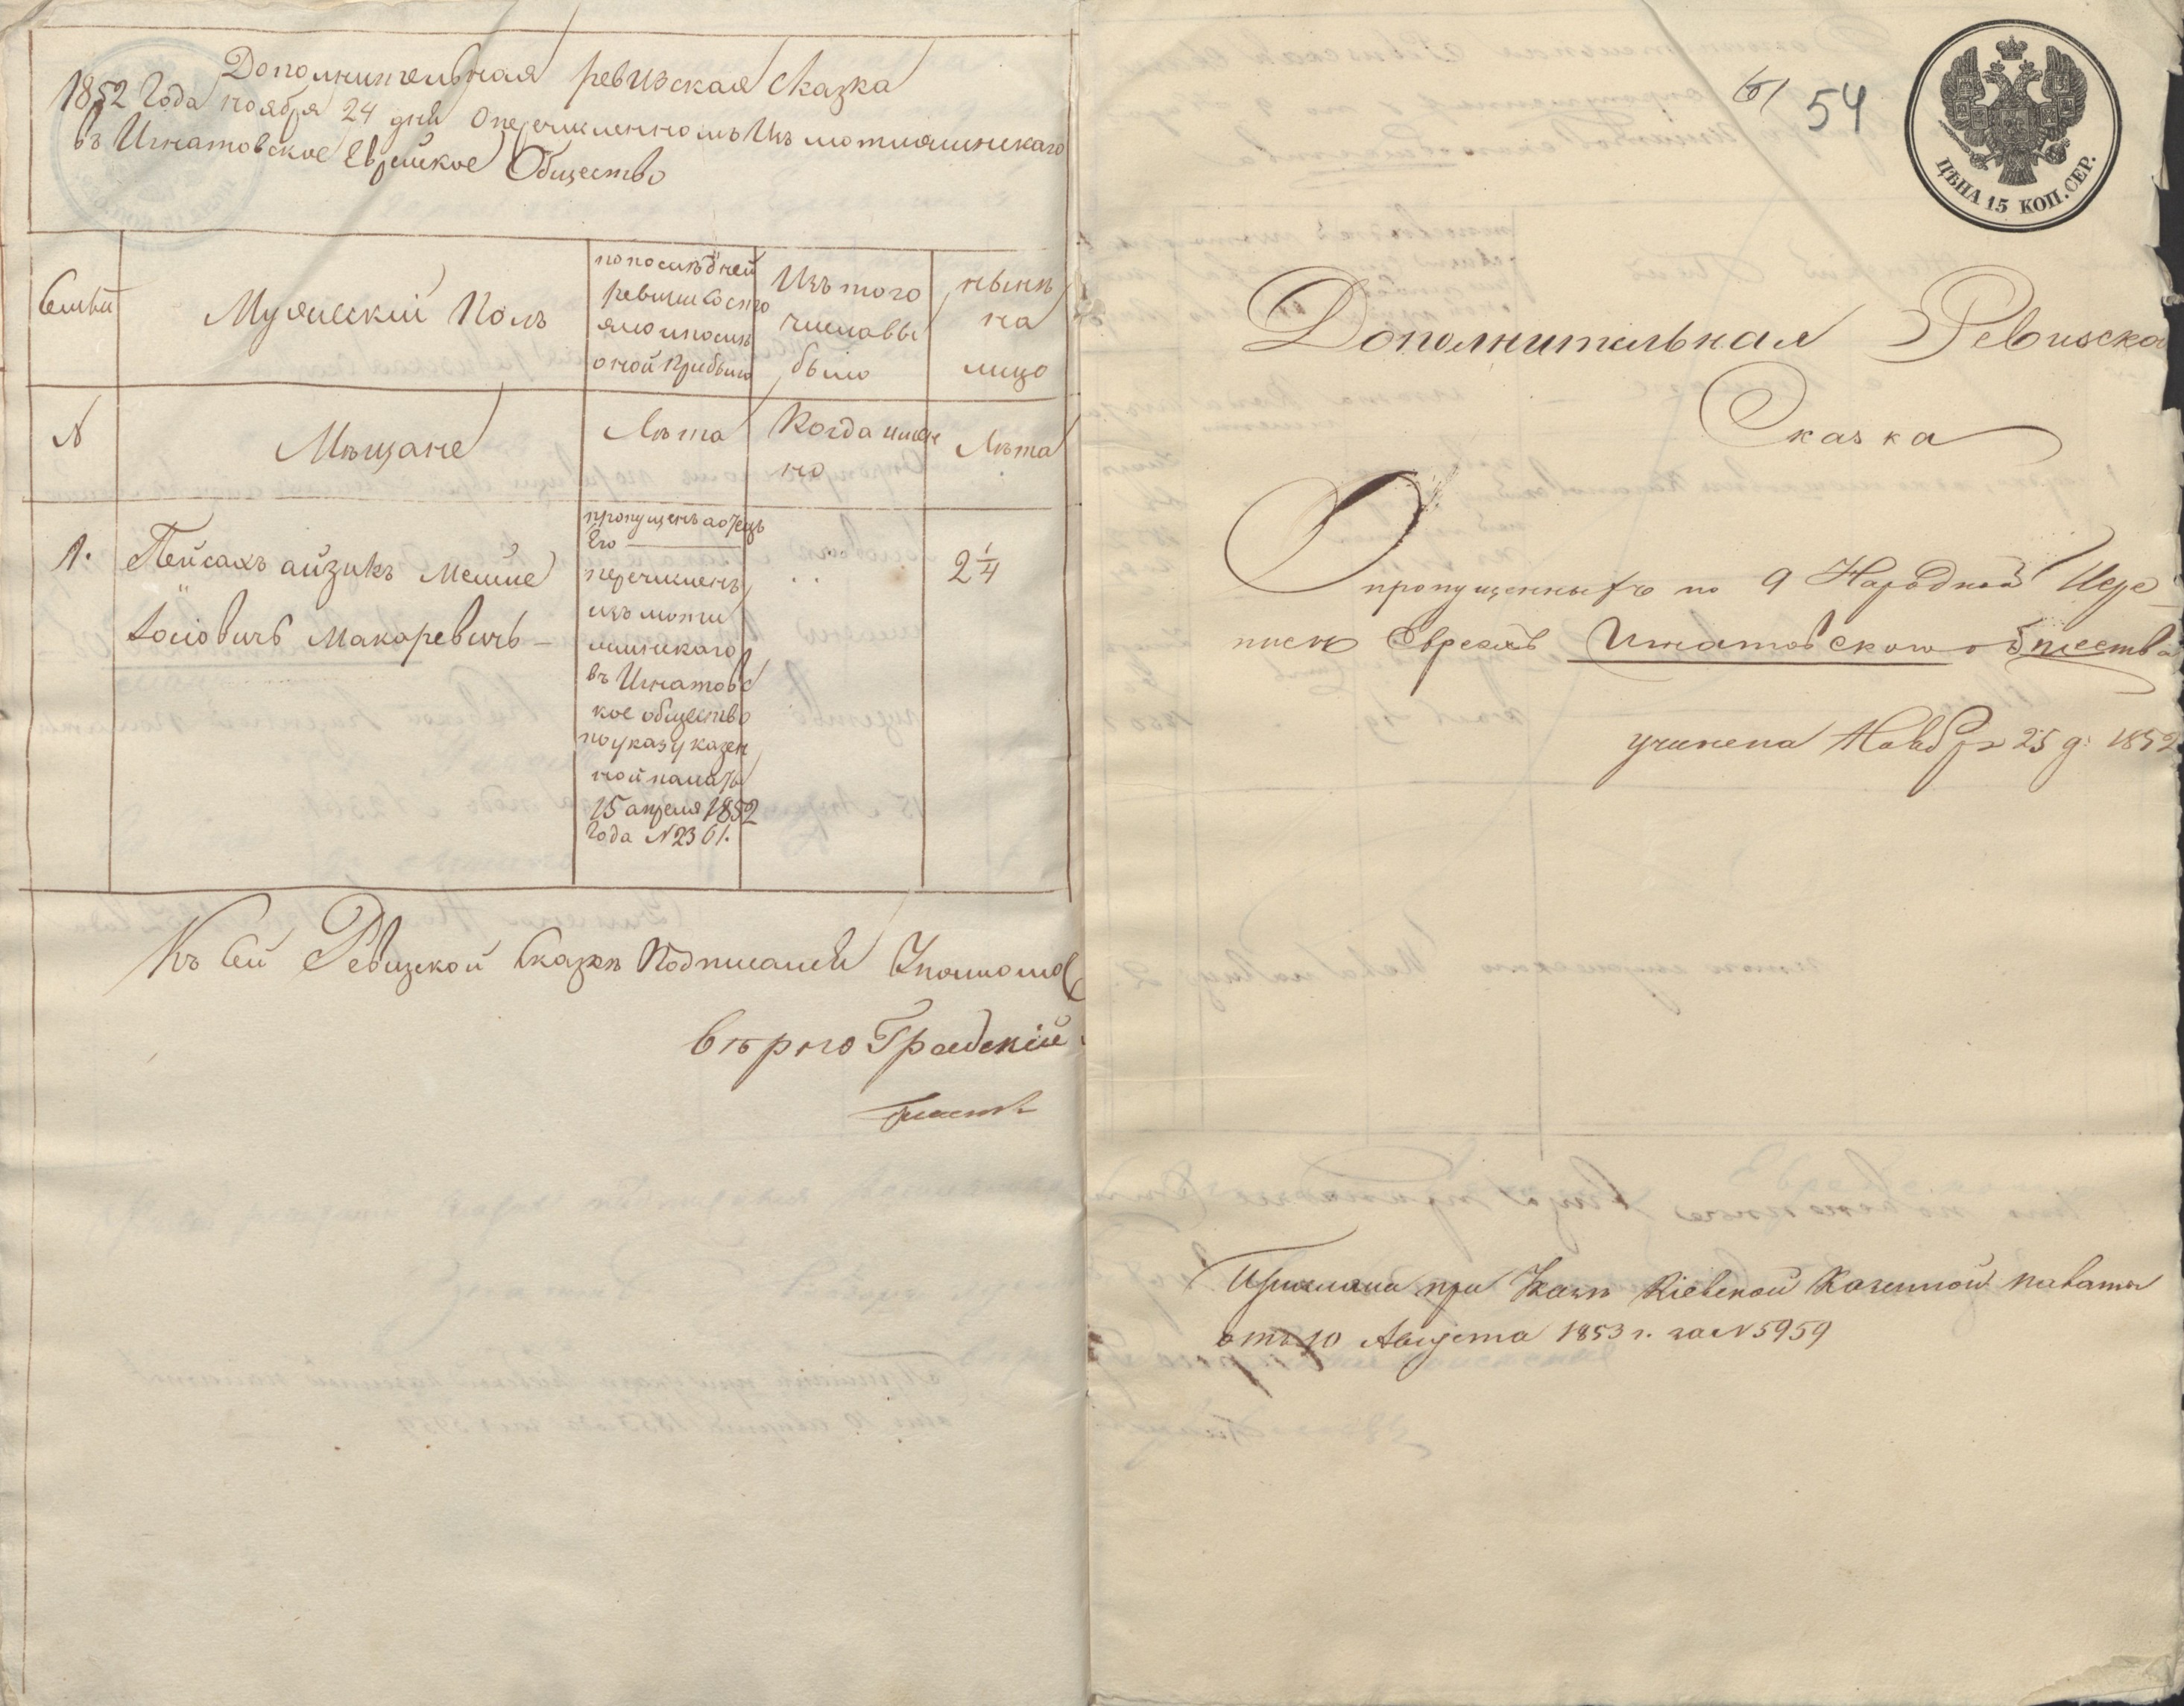 Дополнительная ревизская сказка
1852 Года ноября 24 дня о перечисленномъ Изъ мотиашинскаго
въ Игнатовское Еврейское Общество
Семьи
Мужеский Полъ
по последней
Ревизии Состо
яло и после
оной Прибыло
Изъ того
числа вы
было
ныне
на
лицо
N
Мещане
Лета
Когда имен
но
Лета
1.
Пейсахъ айзикъ Мошие
Іосіовичъ Макаревичъ -
пропущенъ а отецъ
Его
перечисленъ
изъ моти
шинскаго
въ Игнатовс
кое общество
по указу казен
ной палаты
15 апреля 1852
Года N 2361.
2 1/4
Къ Сей Ревизской Сказке Подписался Уполномо
верного Градский
61
54
ЦѢНА 15 КОП. СЕР.
Дополнительная Ревизска
Сказка
О
пропущенныхъ по 9 Народной Пере
писи Евреяхъ Игнатовского общества
учинена Ноября 25 д. 1852
Прислана при Указе Кіевской Казенной палаты
отъ 10 Августа 1853 г. за N 5959